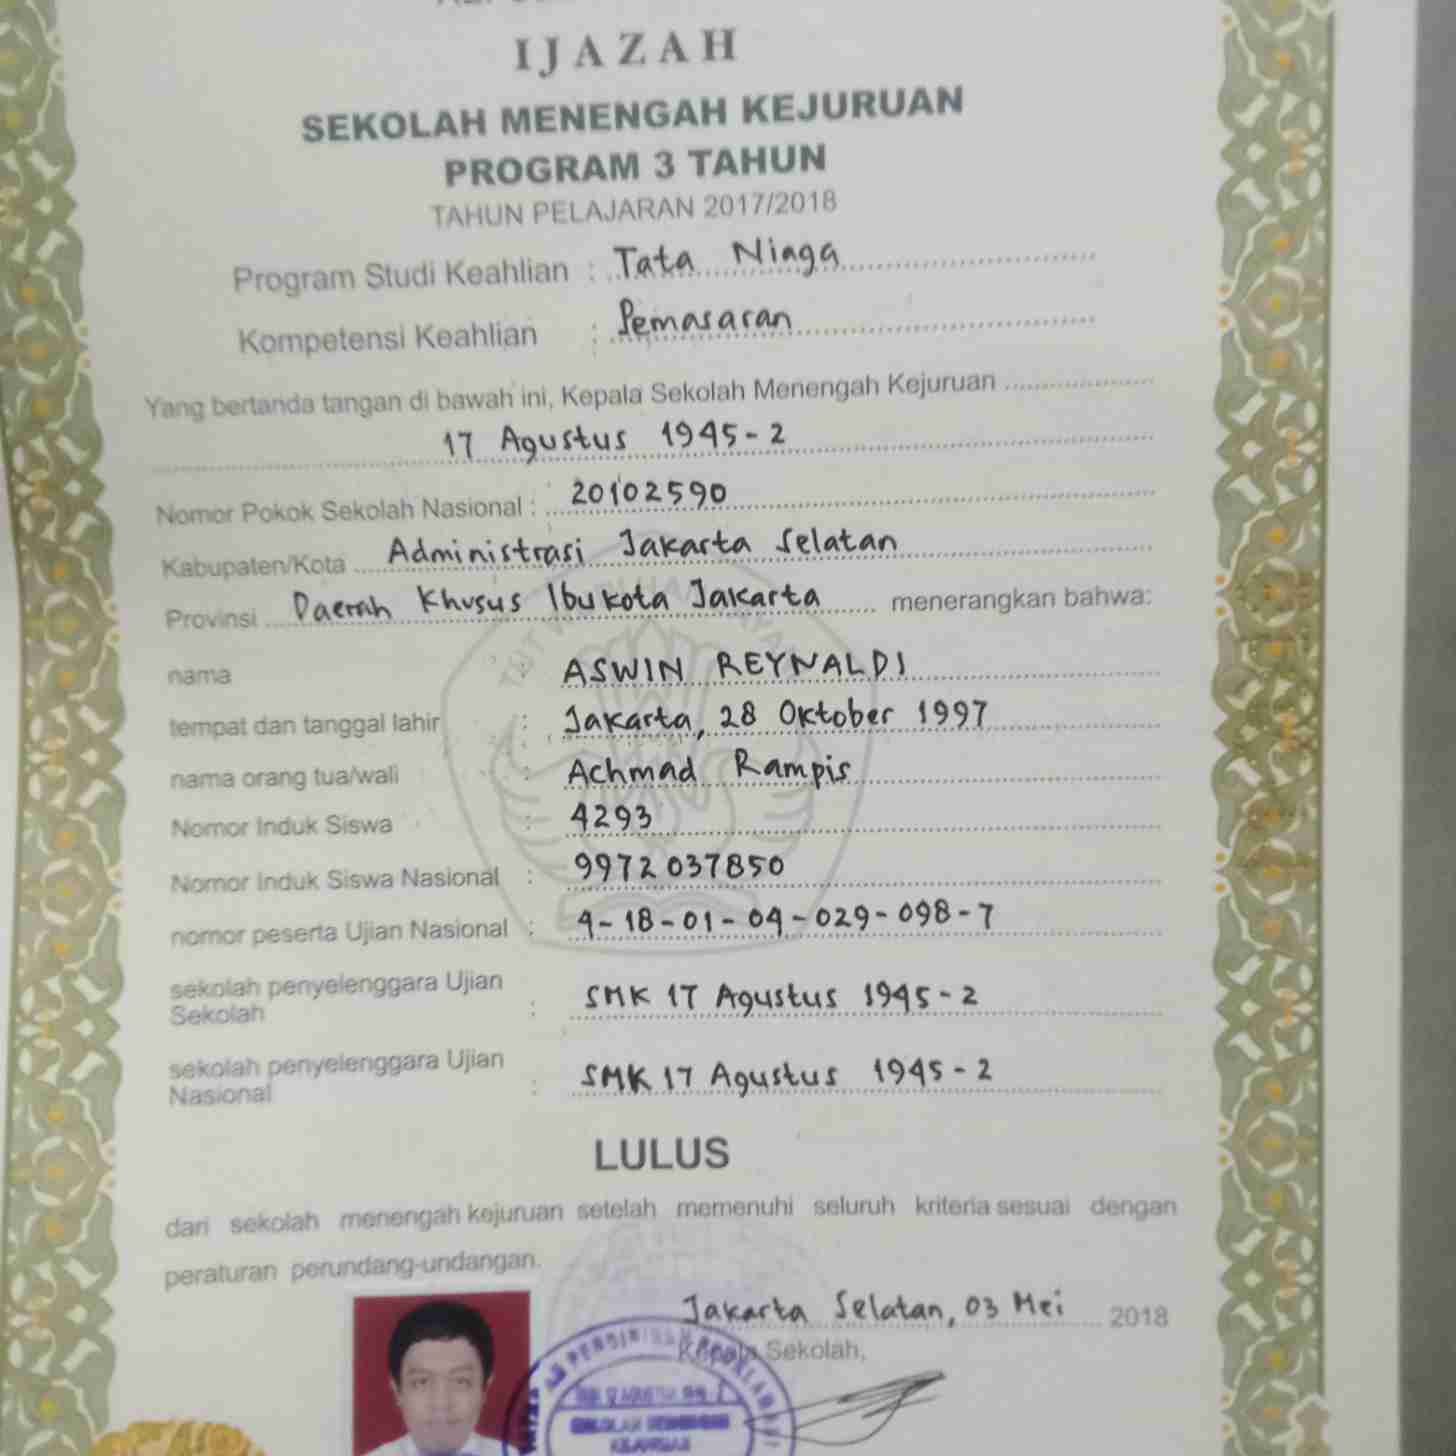 IJAZAH
SEKOLAH MENENGAH KEJURUAN
PROGRAM 3 TAHUN
TAHUN PELAJARAN 2017/2018
Program Studi Keahlian : Tata Niaga
Kompetensi Keahlian : Pemasaran
Yang bertanda tangan di bawah ini, Kepala Sekolah Menengah Kejuruan
17 Agustus 1945-2
Nomor Pokok Sekolah Nasional : 20102590
Kabupaten/Kota Administrasi Jakarta Selatan
Provinsi Daerah Khusus Ibukota Jakarta menerangkan bahwa:
nama : ASWIN REYNALDI
tempat dan tanggal lahir : Jakarta, 28 Oktober 1997
nama orang tua/wali : Achmad Rampis
Nomor Induk Siswa : 4293
Nomor Induk Siswa Nasional : 9972037850
nomor peserta Ujian Nasional : 4-18-01-04-029-098-7
sekolah penyelenggara Ujian
Sekolah : SMK 17 Agustus 1945-2
sekolah penyelenggara Ujian
Nasional : SMK 17 Agustus 1945-2
LULUS
dari sekolah menengah kejuruan setelah memenuhi seluruh kriteria sesuai dengan
peraturan perundang-undangan.
Jakarta Selatan, 03 Mei 2018
Kepala Sekolah,